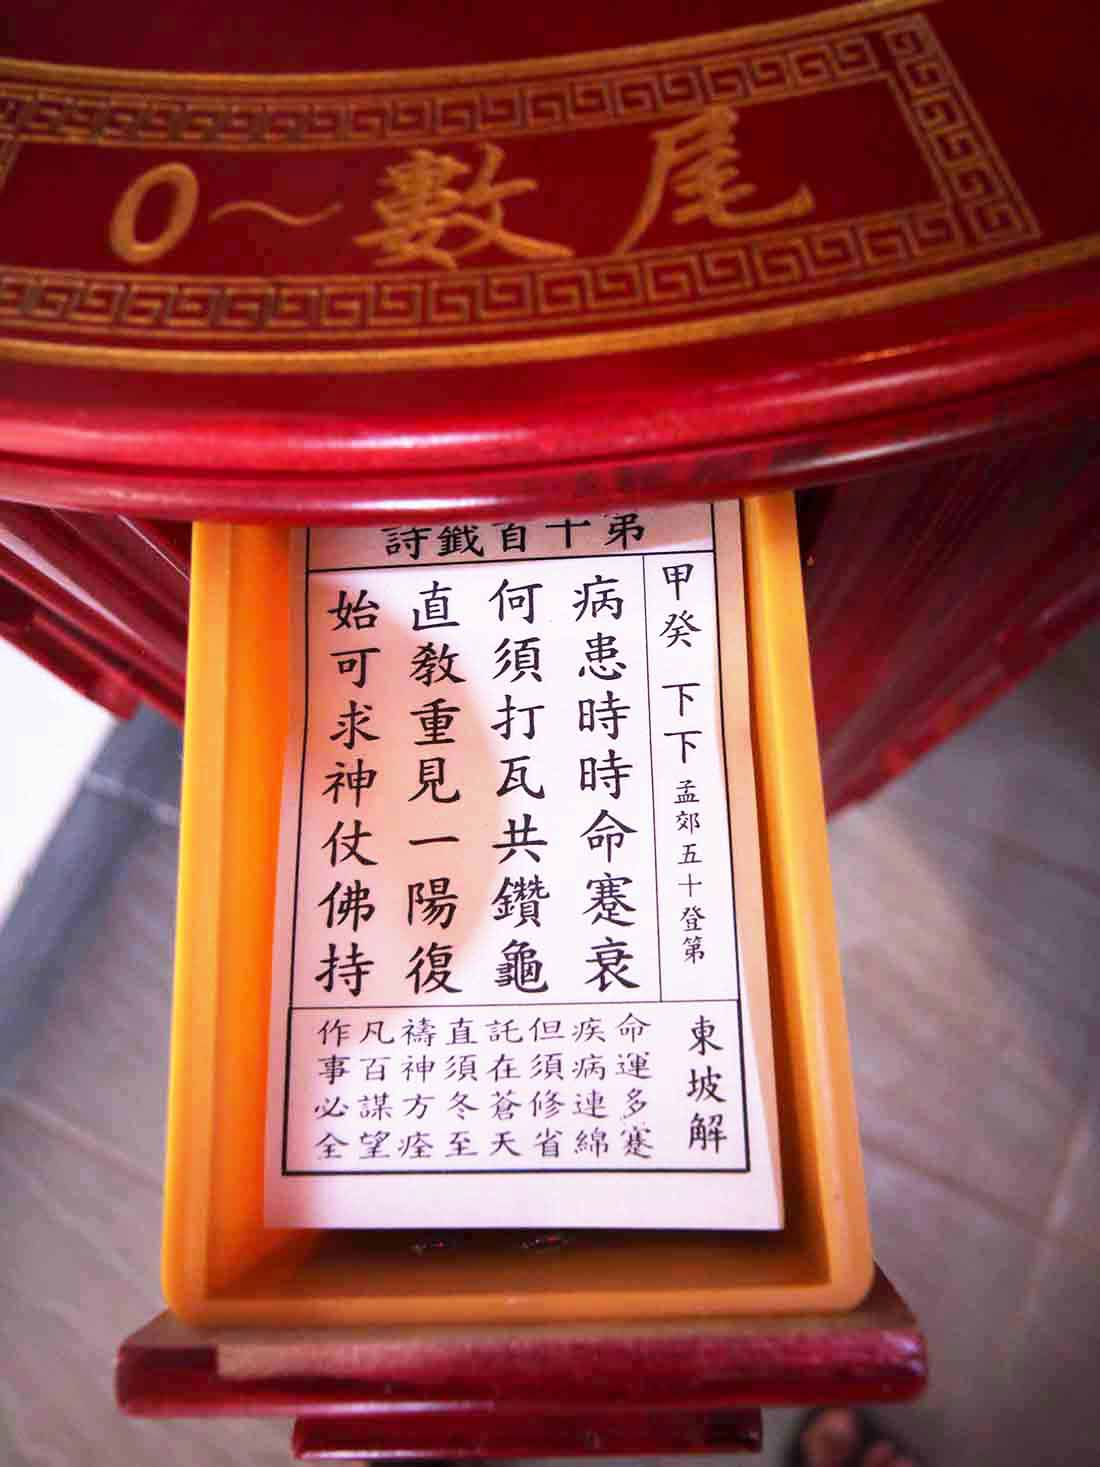 尾數～0
第十首籤詩
甲癸 下下 孟郊五十登第
病患時時命蹇衰
何須打瓦共鑽龜
直教重見一陽復
始可求神仗佛持
東坡解
命運多蹇
疾病連綿
但須修省
託在蒼天
直須冬至
禱神方痊
凡百謀望
作事必全